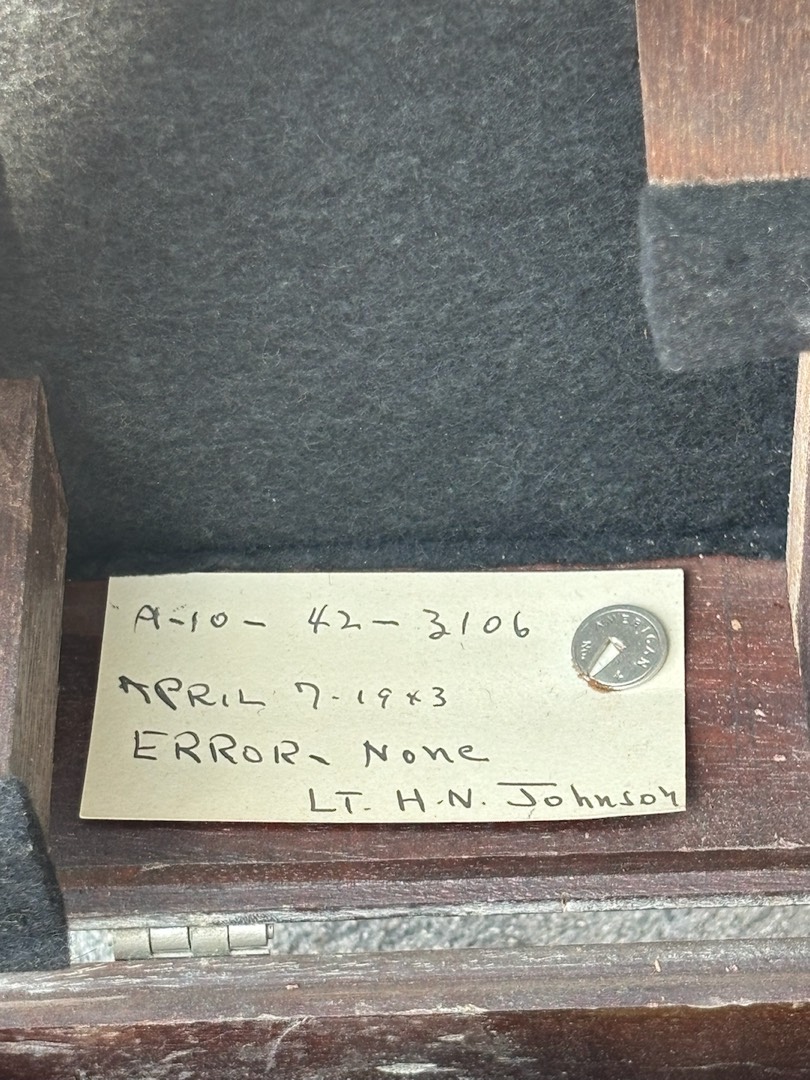 A-10- 42-3106
AMERICAN
APRIL 7-1943
ERROR- None
LT. H.N. Johnson